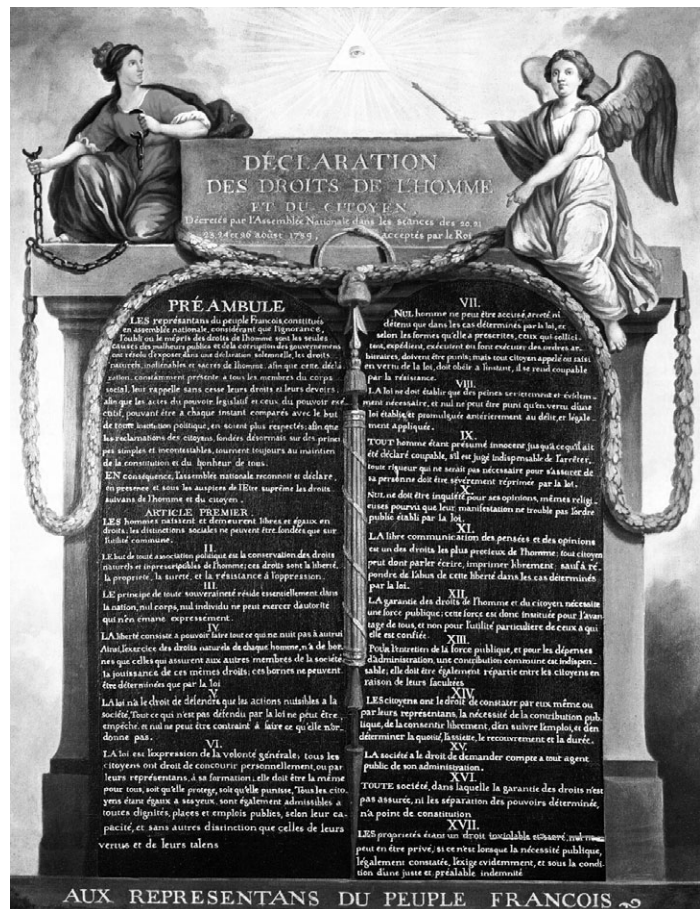 DÉCLARATION
DES DROITS DE L'HOMME
ET DU CITOYEN,
Décretés par l'Assemblée Nationale dans les séances des 20, 21
23, 24 et 26 aoûst 1789, acceptés par le Roi
PRÉAMBULE
LES représantans du peuple François, constitués
en assemblée nationale, considérant que l'ignorance,
l'oubli ou le mépris des droits de l'homme sont les seules
causes des malheurs publics et de la corruption des gouvernemens
ont résolu d'exposer dans une déclaration solemnelle, les droits
naturels, inaliénables et sacrés de l'homme; afin que cette décla
ration, constamment présente à tous les membres du corps
social, leur rappelle sans cesse leurs droits et leurs devoirs;
afin que les actes du pouvoir législatif et ceux du pouvoir exé
cutif, pouvant être à chaque instant comparés avec le but
de toute institution politique, en soient plus respectés; afin que
les réclamations des citoyens, fondées désormais sur des princi
pes simples et incontestables, tournent toujours au maintien
de la constitution et du bonheur de tous.
EN conséquence, l'assemblée nationale reconnoit et déclare,
en présence et sous les auspices de l'Etre suprême les droits
suivans de l'homme et du citoyen.
ARTICLE PREMIER.
LES hommes naissent et demeurent libres et égaux en
droits; les distinctions sociales ne peuvent être fondées que sur
l'utilité commune.
II.
LE but de toute association politique est la conservation des droits
naturels et inprescriptibles de l'homme; ces droits sont la liberté,
la propriété, la sureté, et la résistance à l'oppression.
III.
LE principe de toute souveraineté réside essentiellement dans
la nation, nul corps, nul individu ne peut exercer d'autorité
qui n'en émane expressement.
IV.
LA liberté consiste a pouvoir faire tout ce qui ne nuit pas à autrui
Ainsi, l'exercice des droits naturels de chaque homme, n'a de bor
nes que celles qui assurent aux autres membres de la société
la jouissance de ces mêmes droits; ces bornes ne peuvent
être déterminées que par la loi
V.
LA loi n'a le droit de défendre que les actions nuisibles à la
société. Tout ce qui n'est pas défendu par la loi ne peut être
empêché, et nul ne peut être contraint à faire ce qu'elle n'or-
donne pas.
VI.
LA loi est l'expression de la volonté générale; tous les
citoyens ont droit de concourir personnellement, ou par
leurs représentans, à sa formation; elle doit être la même
pour tous, soit qu'elle protege, soit qu'elle punisse, Tous les cito
yens étant égaux a ses yeux, sont également admissibles à
toutes dignités, places et emplois publics, selon leur ca
pacité, et sans autres distinction que celles de leurs
vertus et de leurs talens
VII.
NUL homme ne peut être accusé, arreté ni
détenu que dans les cas déterminés par la loi, et
selon les formes qu'elle a prescrites, ceux qui sollici-
tent, expédient, exécutent ou font exécuter des ordres ar-
bitraires, doivent être punis; mais tout citoyen appelé ou saisi
en vertu de la loi, doit obéir a l'instant, il se rend coupable
par la résistance.
VIII.
LA loi ne doit établir que des peines strictement et évidem-
ment nécessaire, et nul ne peut être puni qu'en vertu d'une
loi établie et promulguée antérieurement au délit, et légale-
ment appliquée.
IX.
TOUT homme étant présumé innocent jusqu'a ce qu'il ait
été déclaré coupable, s'il est jugé indispensable de l'arrêter,
toute rigueur qui ne serait pas nécessaire pour s'assurer de
sa personne doit être sévèrement réprimée par la loi.
X.
NUL ne doit être inquiété pour ses opinions, mêmes religi
euses pourvu que leur manifestation ne trouble pas l'ordre
public établi par la loi.
XI.
LA libre communication des pensées et des opinions
est un des droits les plus precieux de l'homme; tout citoyen
peut dont parler écrire, imprimer librement: sauf à ré-
pondre de l'abus de cette liberté dans les cas déterminés
par la loi.
XII.
LA garantie des droits de l'homme et du citoyen nécessite
une force publique; cette force est donc instituée pour l'avan
tage de tous, et non pour l'utilité particuliere de ceux a qui
elle est confiée.
XIII.
Pour l'entretien de la force publique, et pour les dépenses
d'administration, une contribution commune est indispen-
sable; elle doit être également répartie entre les citoyens en
raison de leurs facultées
XIV.
LES citoyens ont le droit de constater par eux même ou
par leurs représentans, la nécessité de la contribution pub
lique, de la consentir librement, d'en suivre l'emploi, et d'en
déterminer la quotité, l'assiette, le recouvrement et la durée.
XV.
LA société a le droit de demander compte a tout agent
public de son administration.
XVI.
TOUTE société, dans laquelle la garantie des droits n'est
pas assurée, ni les séparation des pouvoirs déterminée,
n'a point de constitution
XVII.
LES propriétés étant un droit inviolable et sacré, nul ne
peut en être privé, si ce n'est lorsque la nécessité publique,
légalement constatée, l'exige evidemment, et sous la condi
tion d'une juste et préalable indemnité
AUX REPRESENTANS DU PEUPLE FRANCOIS